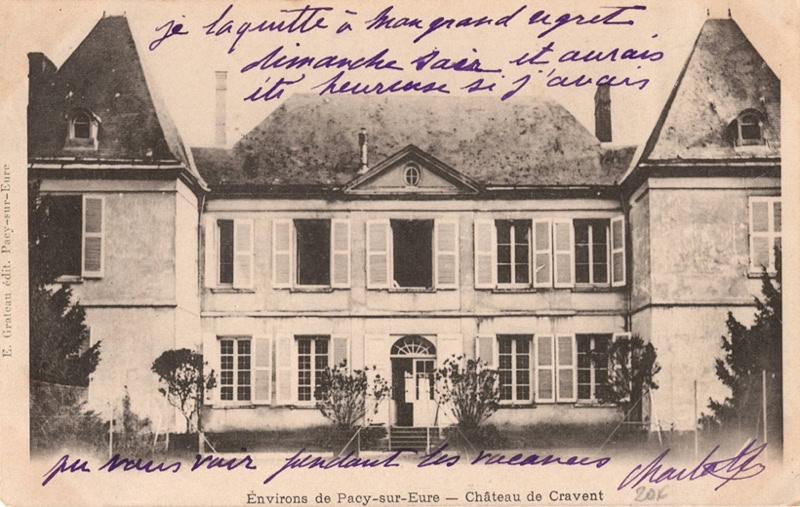 je la quitte à mon grand regret
dimanche soir et aurais
été heureuse si j'avais
pu vous voir pendant les vacances
Charlotte
Environs de Pacy-sur-Eure — Château de Cravent
20F
E. Grateau édit. Pacy-sur-Eure